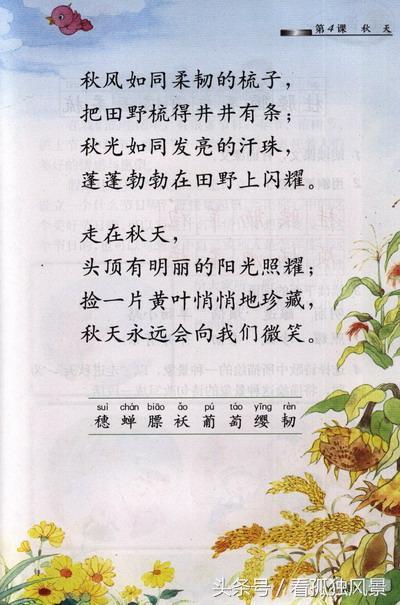 第4课 秋天
秋风如同柔韧的梳子，
把田野梳得井井有条；
秋光如同发亮的汗珠，
蓬蓬勃勃在田野上闪耀。
走在秋天，
头顶有明丽的阳光照耀；
捡一片黄叶悄悄地珍藏，
秋天永远会向我们微笑。
suì chán biāo ǎo pú táo yīng rèn
穗 蝉 膘 袄 葡 萄 缨 韧
头条号/看孤独风景